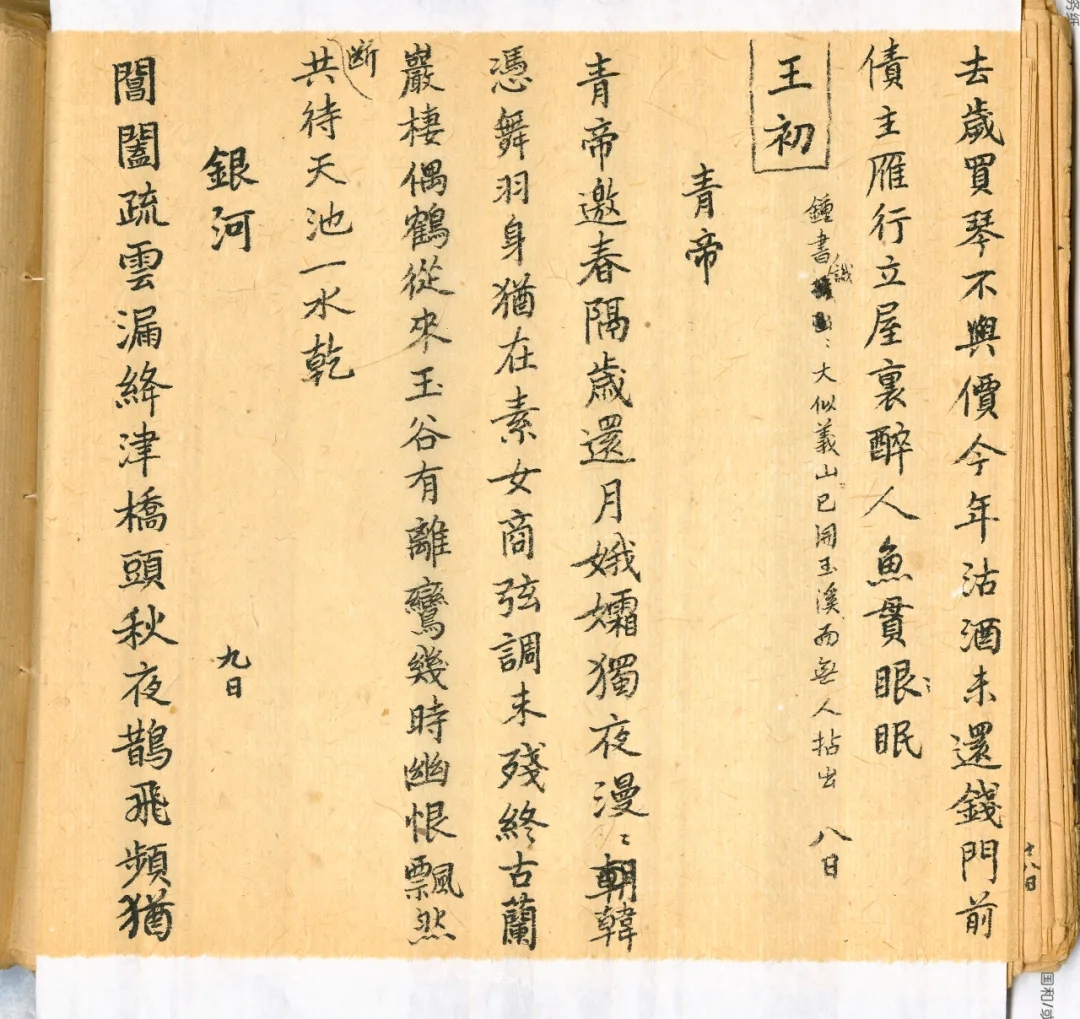 去歲買琴不與價今年沽酒未還錢門前
債主雁行立屋裏醉人魚貫眼﹕眠
王初
鍾書識﹕大似義山已開玉溪而無人拈出 八日
青帝
青帝邀春隔歲還月娥孀獨夜漫﹕韓
憑舞羽身猶在素女商弦調未殘終古蘭
巖棲偶鶴從來玉谷有離鸞幾時幽恨飄然
斷
共待天池一水乾
銀河
九日
閶闔疏雲漏絳津橋頭秋夜鵲飛頻猶
十八日